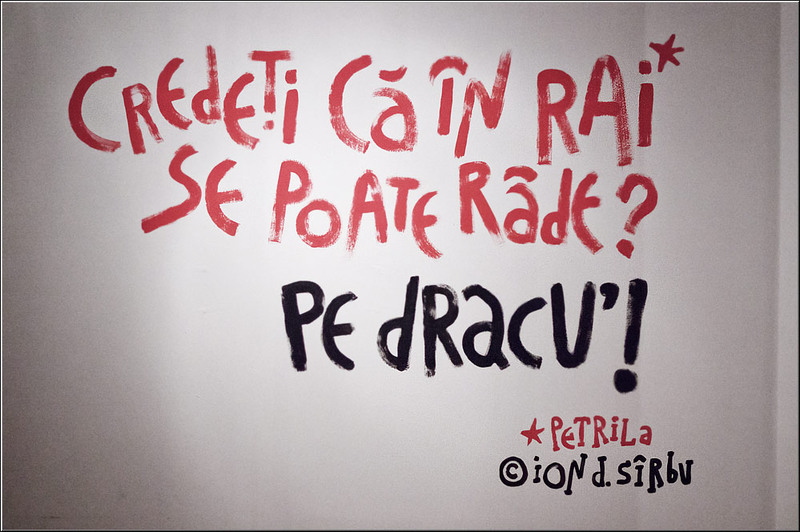 CREdEȚi CĂ ÎN RAi*
SE POATE RÂdE?
PE dRACU'!
*PETRILa
© iON d. SÎRbU